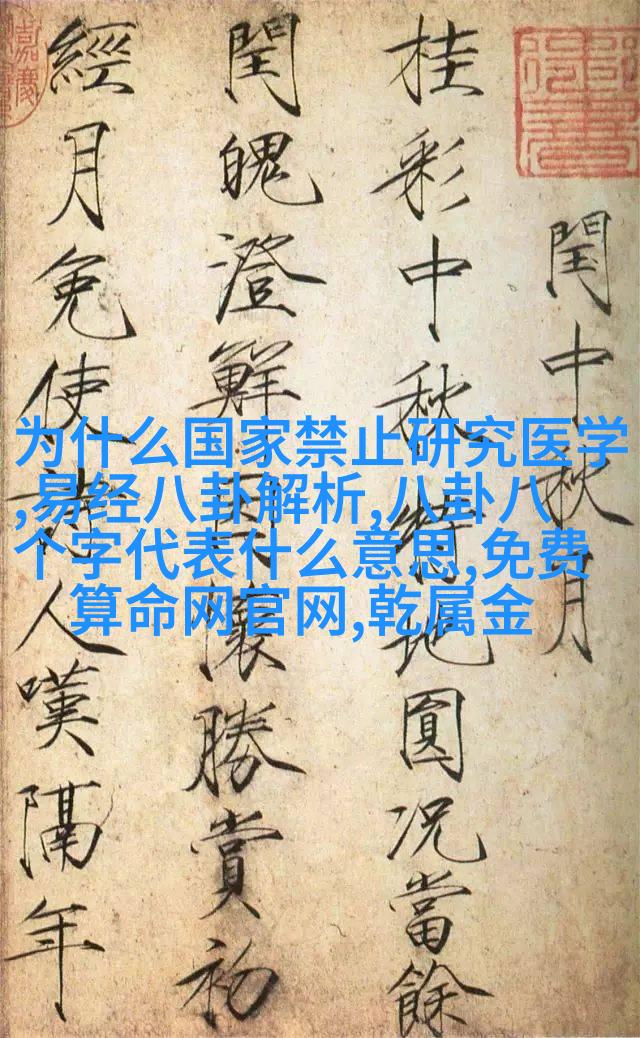 閏中秋月
桂彩中秋特地圓况當餘
閏魄澄鮮因懷勝賞初
經月免使詩人嘆隔年
为什么国家禁止研究医学
,易经八卦解析,八卦八
个字代表什么意思,免费
算命网官网,乾属金